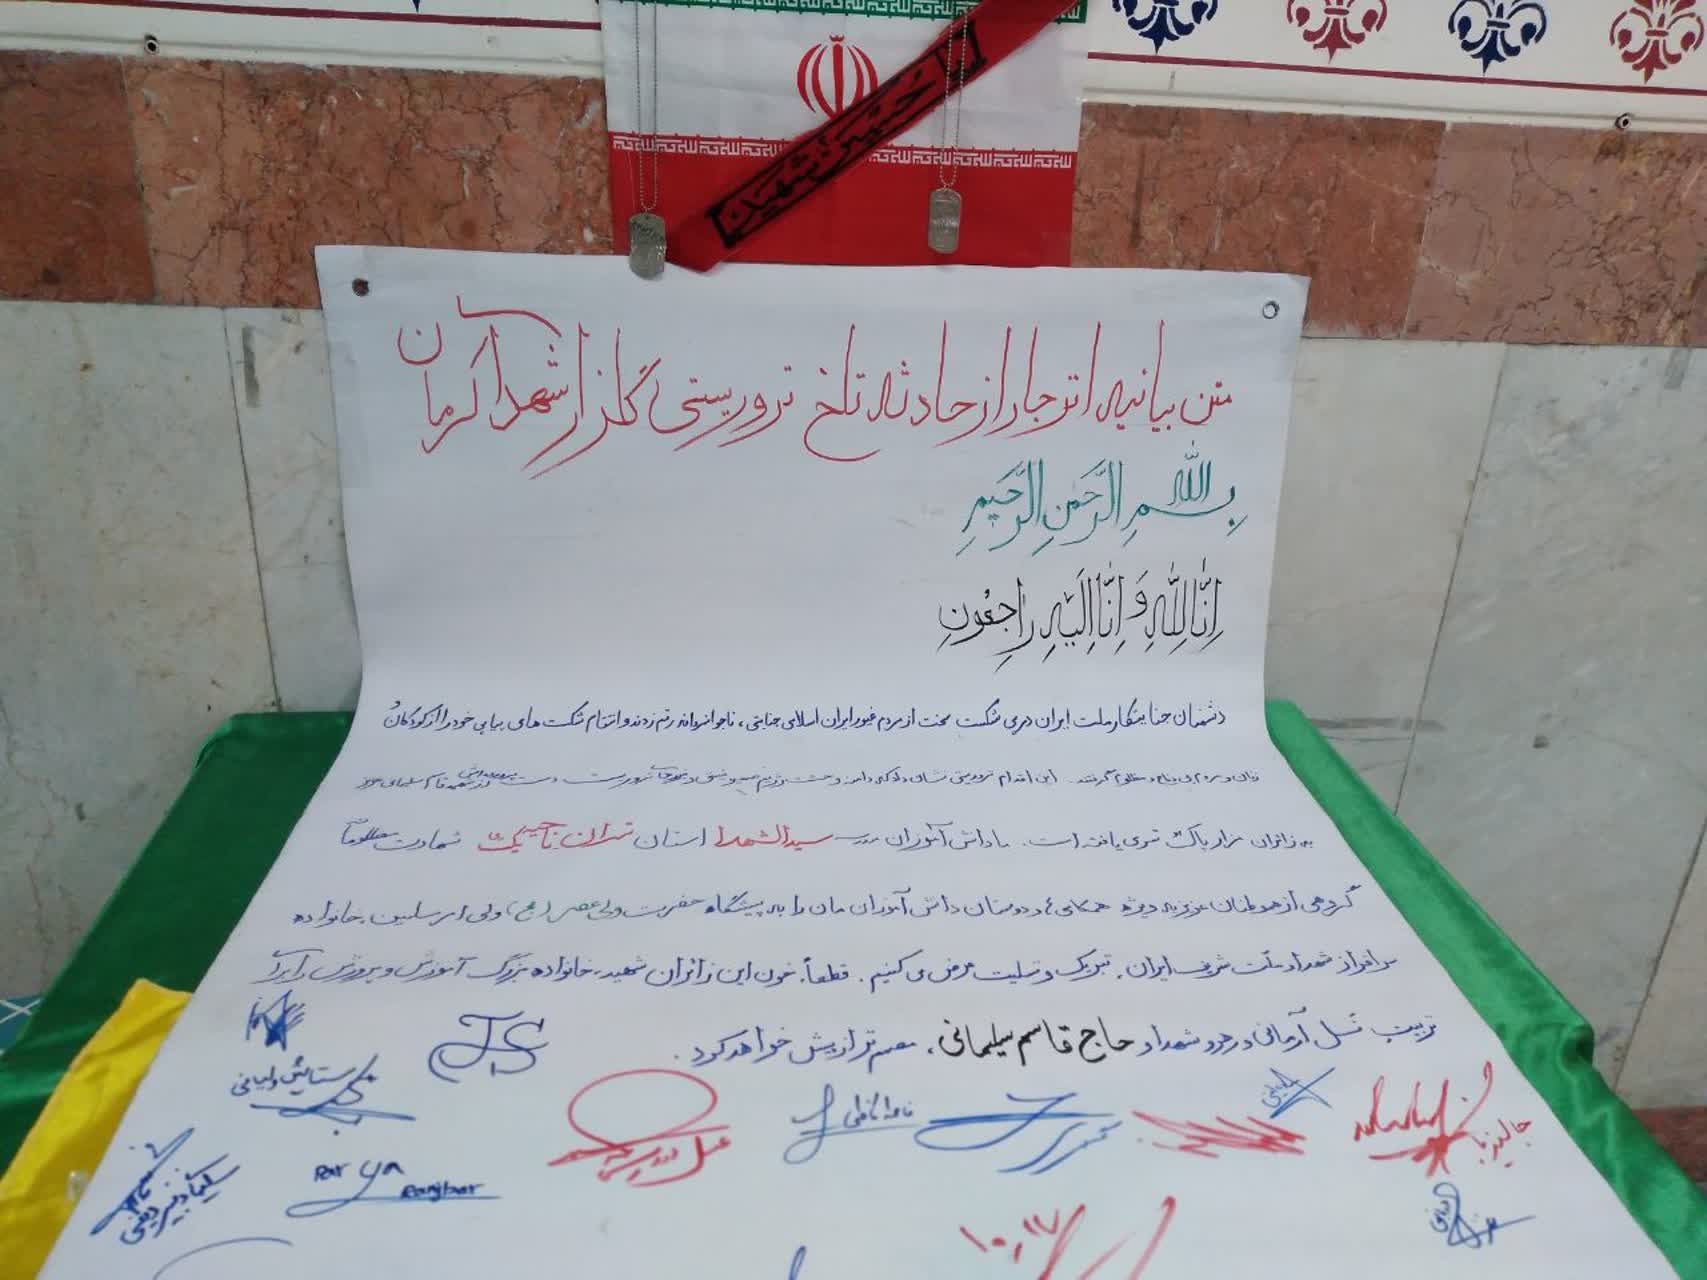 حسین شهید
متن بیانیه انزجار از حادثه تلخ تروریستی گلزار شهدا کرمان
بِسْمِ اللهِ الرَّحْمنِ الرَّحیمِ
اِنّا لِلّهِ وَ اِنّا اِلَیْهِ راجِعُونِ
دشمنان جنایتکار ملت ایران در پی شکست سخت از مردم غیور ایران اسلامی جنایتی، ناجوانمردانه رقم زدند و انتقام شکست های پیاپی خود را از کودکان
زنان و مردم بی دفاع و مظلوم گرفتند. این اقدام تروریستی نشان داد که دامنه وحشت رژیم تروریست دست از شهید قاسم سلیمانی عزیز
به زائران مزار پاک تسری یافته است. ما دانش آموزان مدرسه سیدالشهدا استان تهران ناحیه یک شهادت مظلومانه
گروهی از هموطنان عزیز به ویژه همکلاسی ها و دوستان دانش آموزان مان را به پیشگاه حضرت ولی عصر (عج)، ولی امر مسلمین، خانواده
سرافراز شهدا، ملت شریف ایران، تبریک و تسلیت عرض می کنیم. قطعاً، خون این زائران شهید، خانواده بزرگ آموزش و پرورش را برای
تربیت نسل آرمانی و رهرو شهدا و حاج قاسم سلیمانی، مصمم تر از پیش خواهد کرد.
ستایش
Parya Ranjbar
۱۰,۱۷